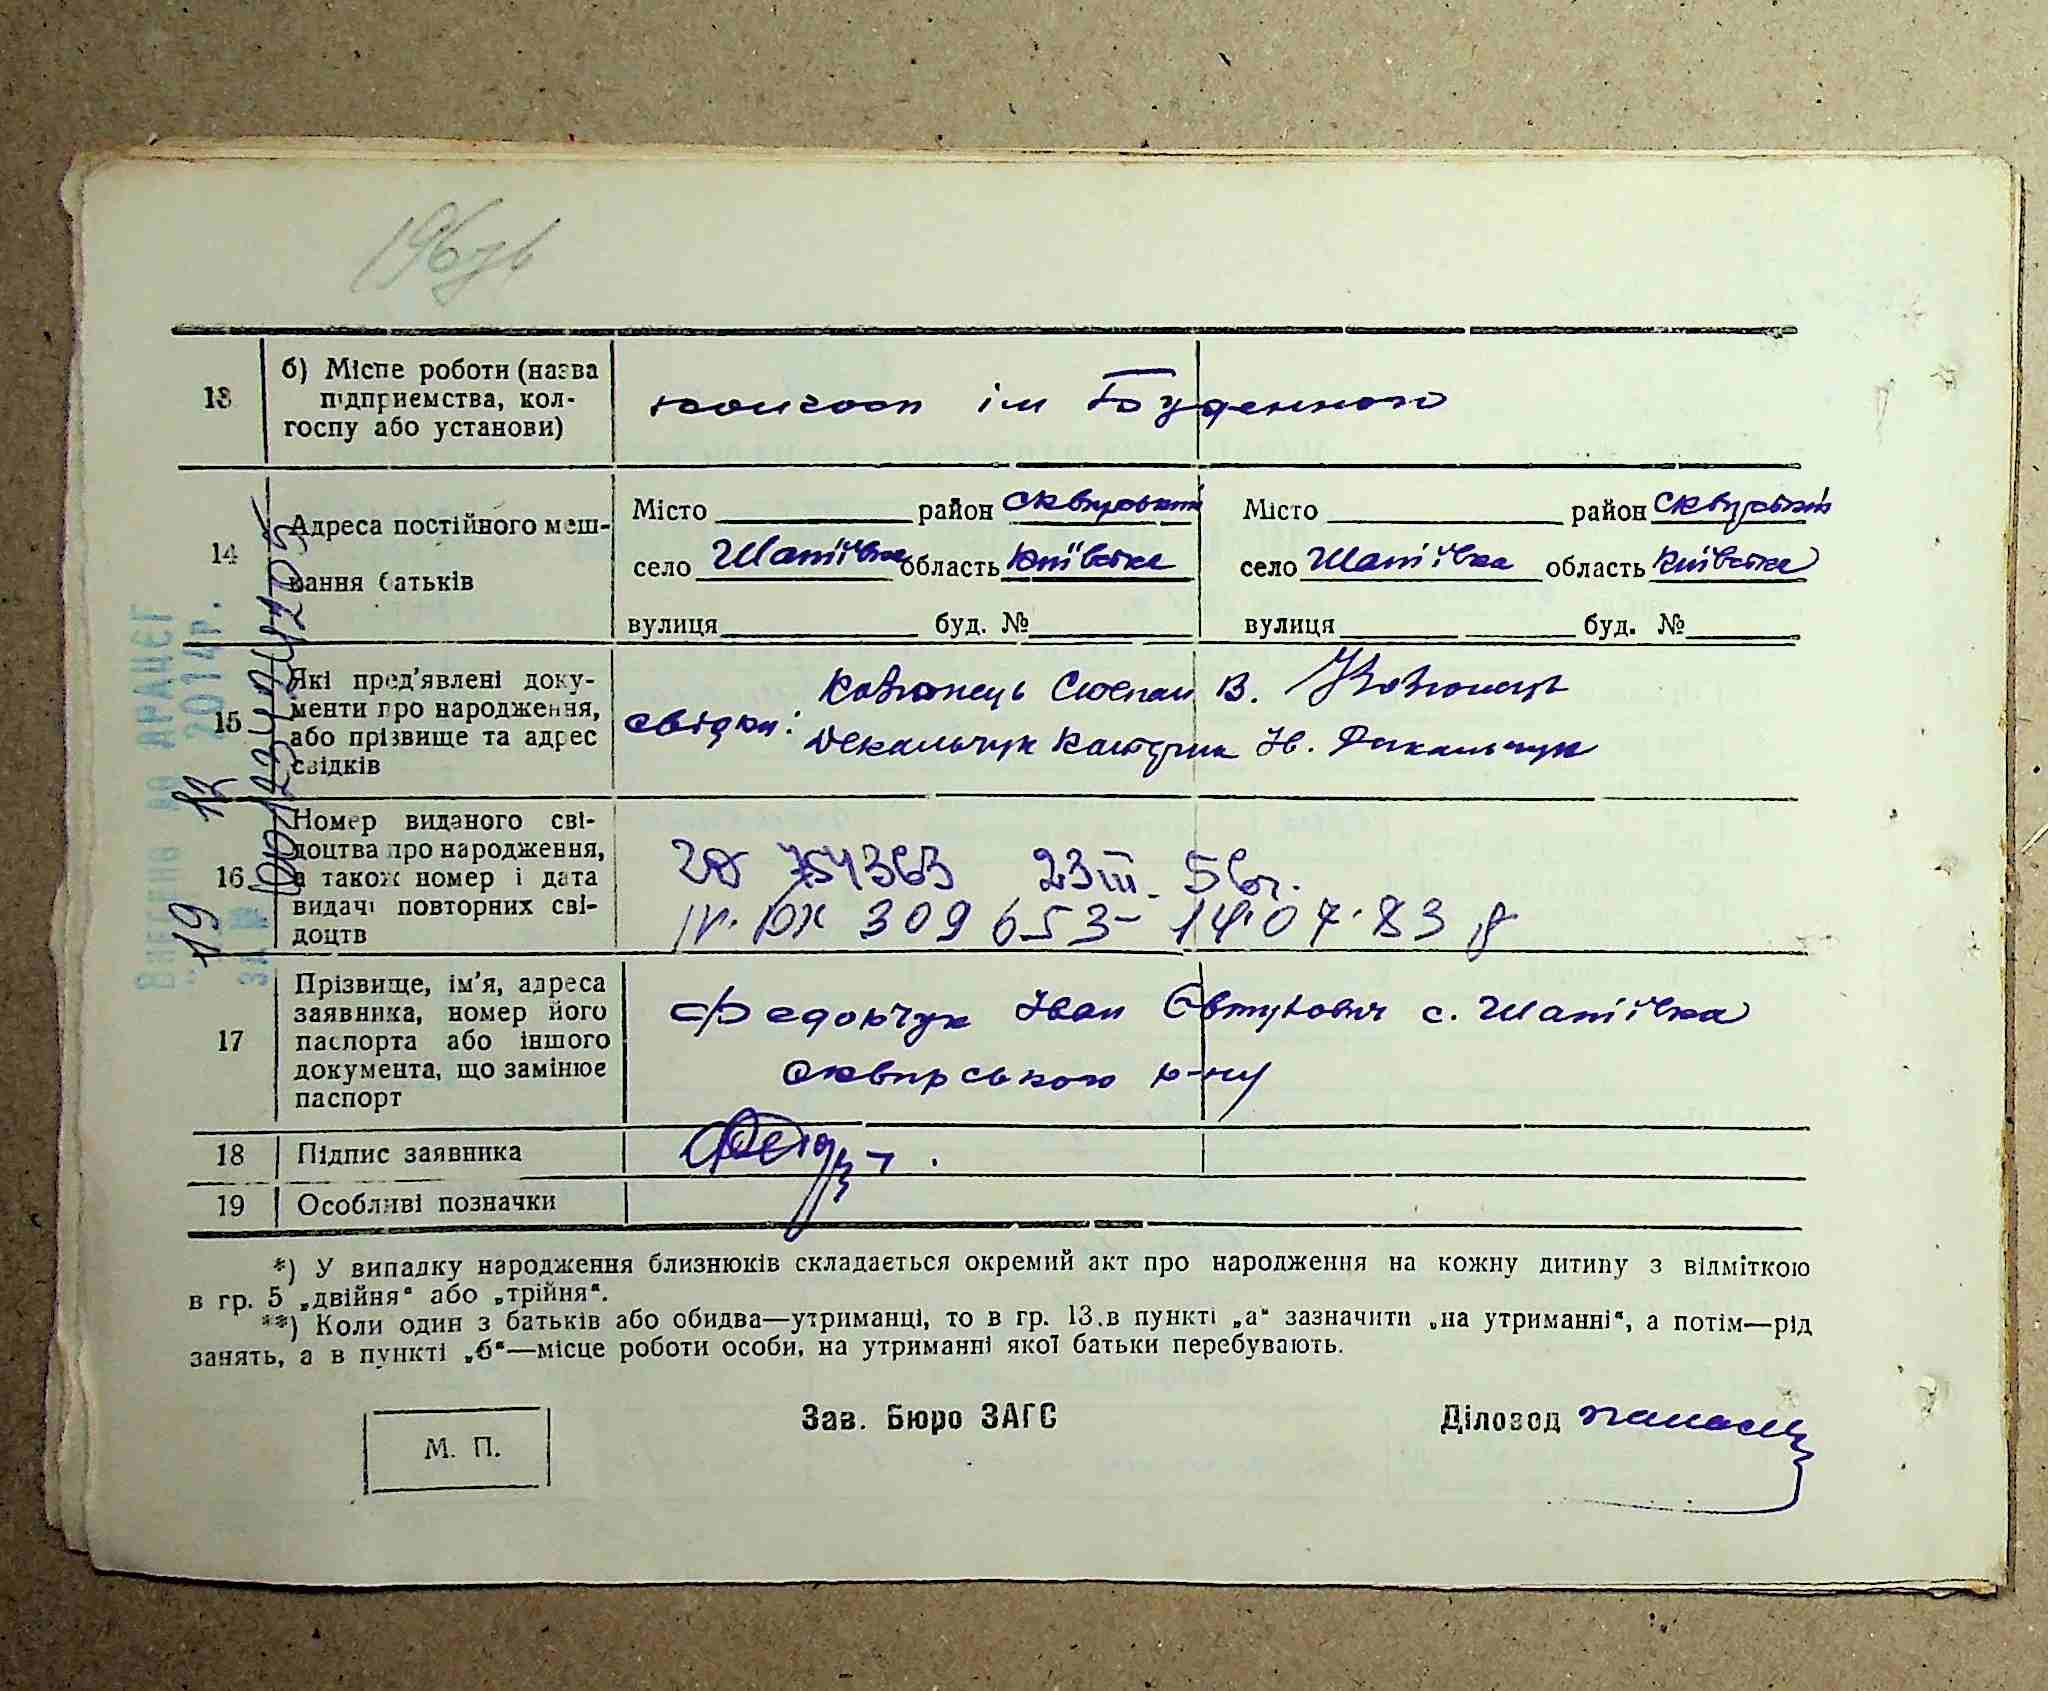 13 б) Місце роботи (назва підприємства, колгоспу або установи)
колгосп ім Буденного
14 Адреса постійного мешкання батьків
Місто район Сквирський
село Шапіївка область Київська
вулиця буд. №
Місто район Сквирський
село Шапіївка область Київська
вулиця буд. №
15 Які пред'явлені документи про народження, або прізвище та адрес свідків
свідки: Ковтонець Степан В.
Декальчук Катерин Ів. Декальчук
16 Номер виданого свідоцтва про народження, а також номер і дата видачі повторних свідоцтв
751363 23 III 56 г.
309653 14.07.83
17 Прізвище, ім'я, адреса заявника, номер його паспорта або іншого документа, що замінює паспорт
Федорчук Іван Євтухович с. Шапіївка
Сквирського р-ну
18 Підпис заявника
19 Особливі позначки
*) У випадку народження близнюків складається окремий акт про народження на кожну дитину з відміткою
в гр. 5 „двійня“ або „трійня“.
**) Коли один з батьків або обидва—утриманці, то в гр. 13.в пункті „а“ зазначити „на утриманні“, а потім—рід
занять, а в пункті „б“—місце роботи особи, на утриманні якої батьки перебувають.
М. П.
Зав. Бюро ЗАГС
Діловод
Внесено до ДРАЦСГ
19 12 2014р.
за №